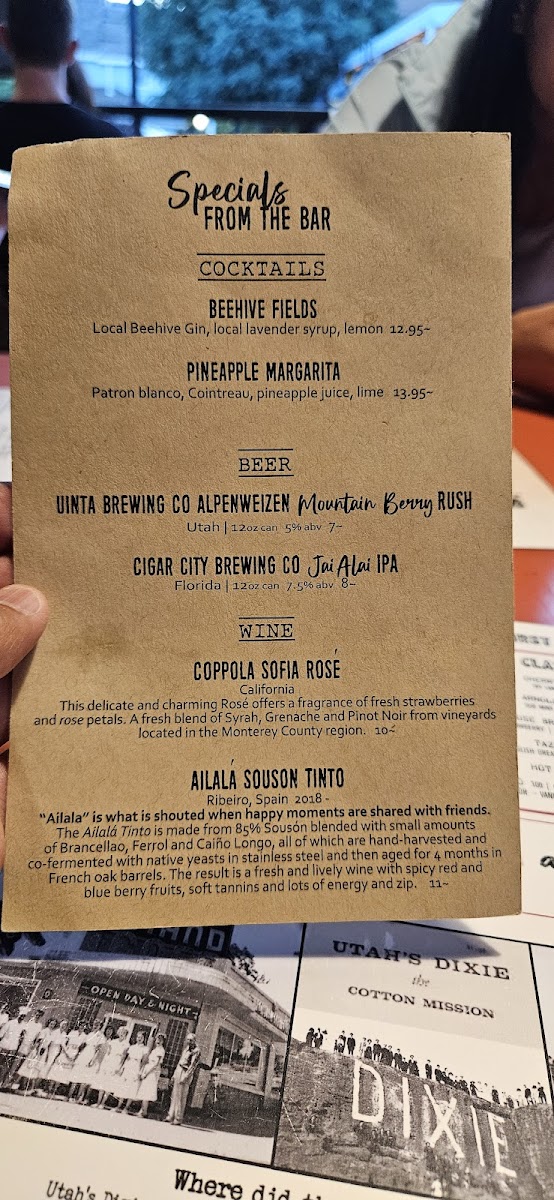 Specials
FROM THE BAR
COCKTAILS
BEEHIVE FIELDS
Local Beehive Gin, local lavender syrup, lemon 12.95~
PINEAPPLE MARGARITA
Patron blanco, Cointreau, pineapple juice, lime 13.95~
BEER
UINTA BREWING CO ALPENWEIZEN Mountain Berry RUSH
Utah | 12oz can 5% abv 7~
CIGAR CITY BREWING CO Jai Alai IPA
Florida | 12oz can 7.5% abv 8~
WINE
COPPOLA SOFIA ROSÉ
California
This delicate and charming Rosé offers a fragrance of fresh strawberries
and rose petals. A fresh blend of Syrah, Grenache and Pinot Noir from vineyards
located in the Monterey County region. 10~
AILALÁ SOUSON TINTO
Ribeiro, Spain 2018 -
"Ailala" is what is shouted when happy moments are shared with friends.
The Ailalá Tinto is made from 85% Sousón blended with small amounts
of Brancellao, Ferrol and Caiño Longo, all of which are hand-harvested and
co-fermented with native yeasts in stainless steel and then aged for 4 months in
French oak barrels. The result is a fresh and lively wine with spicy red and
blue berry fruits, soft tannins and lots of energy and zip. 11~
OPEN DAY & NIGHT
UTAH'S DIXIE
the
COTTON MISSION
DIXIE
Where did
Utah's